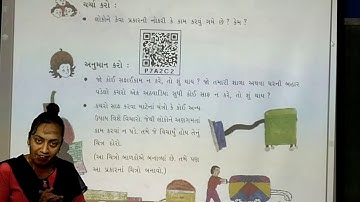 ચર્ચા કરો :
લોકોને કેવા પ્રકારની નોકરી કે કામ કરવું ગમે છે ? કેમ ?
P7A2C2
અનુમાન કરો :
જો કોઈ સફાઈકામ ન કરે, તો શું થાય ? જો તમારી શાળા અથવા ઘરની બહાર
પડેલો કચરો એક અઠવાડિયા સુધી કોઈ સાફ ન કરે, તો શું થાય ?
કચરો સાફ કરવા માટેનાં યંત્રો કે કોઈ અન્ય
ઉપાય વિશે વિચારો જેથી લોકોને અણગમતાં
કામ કરવાં ન પડે. તમે જે વિચાર્યું હોય તેનું
ચિત્ર દોરો.
(આ ચિત્રો બાળકોએ બનાવ્યાં છે. તમે પણ
આ પ્રકારનાં ચિત્રો બનાવો.)